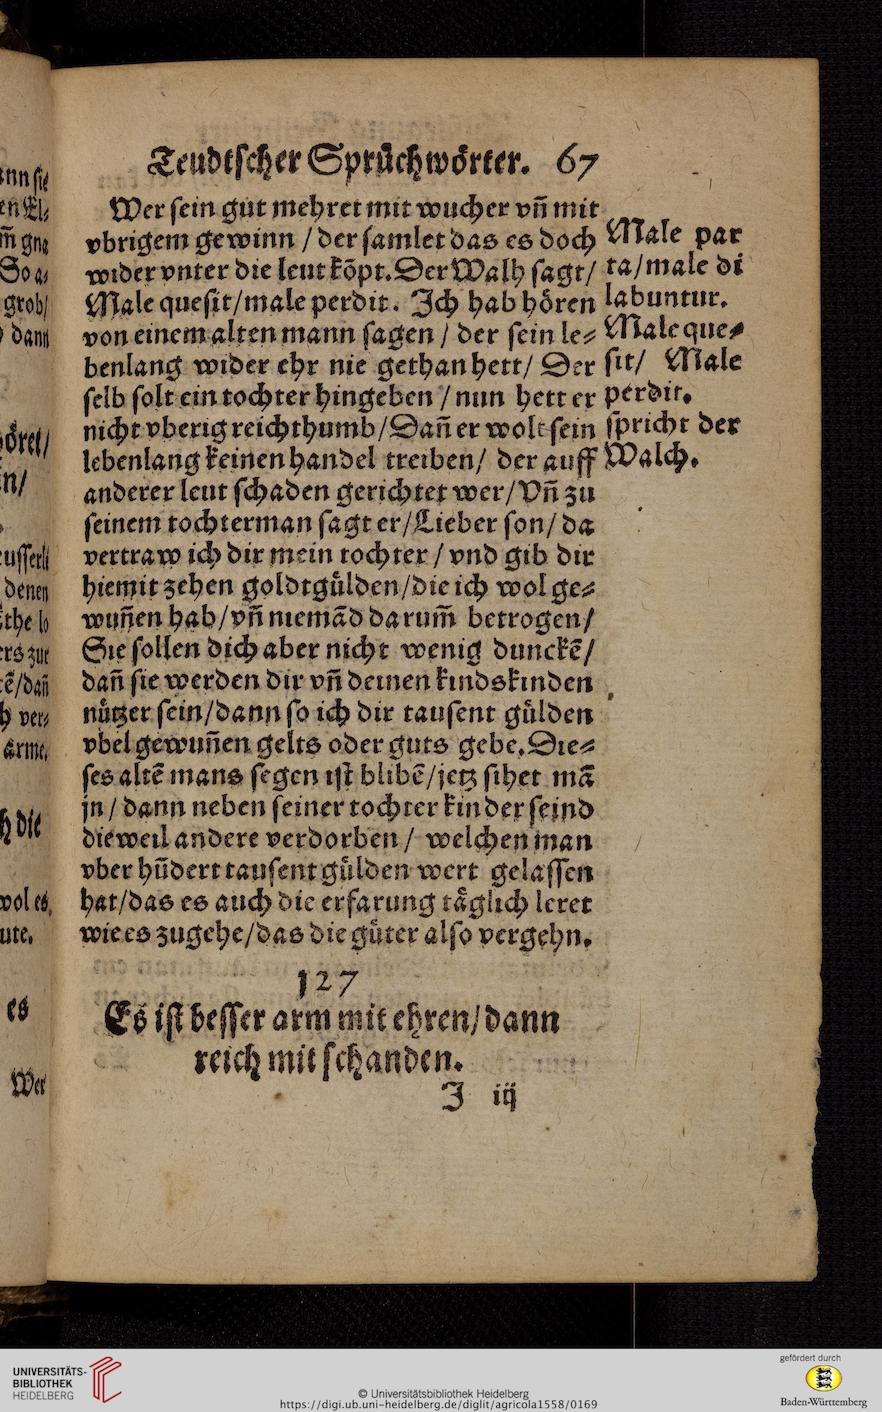 Teudtscher Sprüchwörter. 67
Wer sein gut mehret mit wucher vñ mit
vbrigem gewinn / der samlet das es doch
wider vnter die leut kõpt. Der Walh sagt /
Male quesit / male perdit. Ich hab hören
von einem alten mann sagen / der sein le⸗
benlang wider ehr nie gethan hett / Der
selb solt ein tochter hingeben / nun hett er
nicht vberig reichthumb / Dañ er wolt sein
lebenlang keinen handel treiben / der auff
anderer leut schaden gerichtet wer / Vñ zu
seinem tochterman sagt er / Lieber son / da
vertraw ich dir mein tochter / vnd gib dir
hiemit zehen goldtgülden / die ich wol ge⸗
wuñen hab / vñ niemãd darum̃ betrogen /
Sie sollen dich aber nicht wenig dunckẽ /
dañ sie werden dir vñ deinen kindskinden
nützer sein / dann so ich dir tausent gülden
vbel gewuñen gelts oder guts gebe. Die⸗
ses altẽ mans segen ist blibẽ / jetz sihet mã
jn / dann neben seiner tochter kinder seind
dieweil andere verdorben / welchen man
vber hũdert tausent gülden wert gelassen
hat / das es auch die erfarung täglich leret
wie es zugehe / das die güter also vergehn.
Male par
ta / male di
labuntur.
Male que⸗
sit / Male
perdit.
spricht der
Walch.
127
Es ist besser arm mit ehren / dann
reich mit schanden.
J iij
nn sie
m̃ gna
So a⸗
grob /
dann
n /
denen
the lo
ers zur
ẽ / dañ
ver⸗
arme.
die
wol es
ute.
es
Wer
UNIVERSITÄTS-
BIBLIOTHEK
HEIDELBERG
© Universitätsbibliothek Heidelberg
https://digi.ub.uni-heidelberg.de/diglit/agricola1558/0169
gefördert durch
Baden-Württemberg